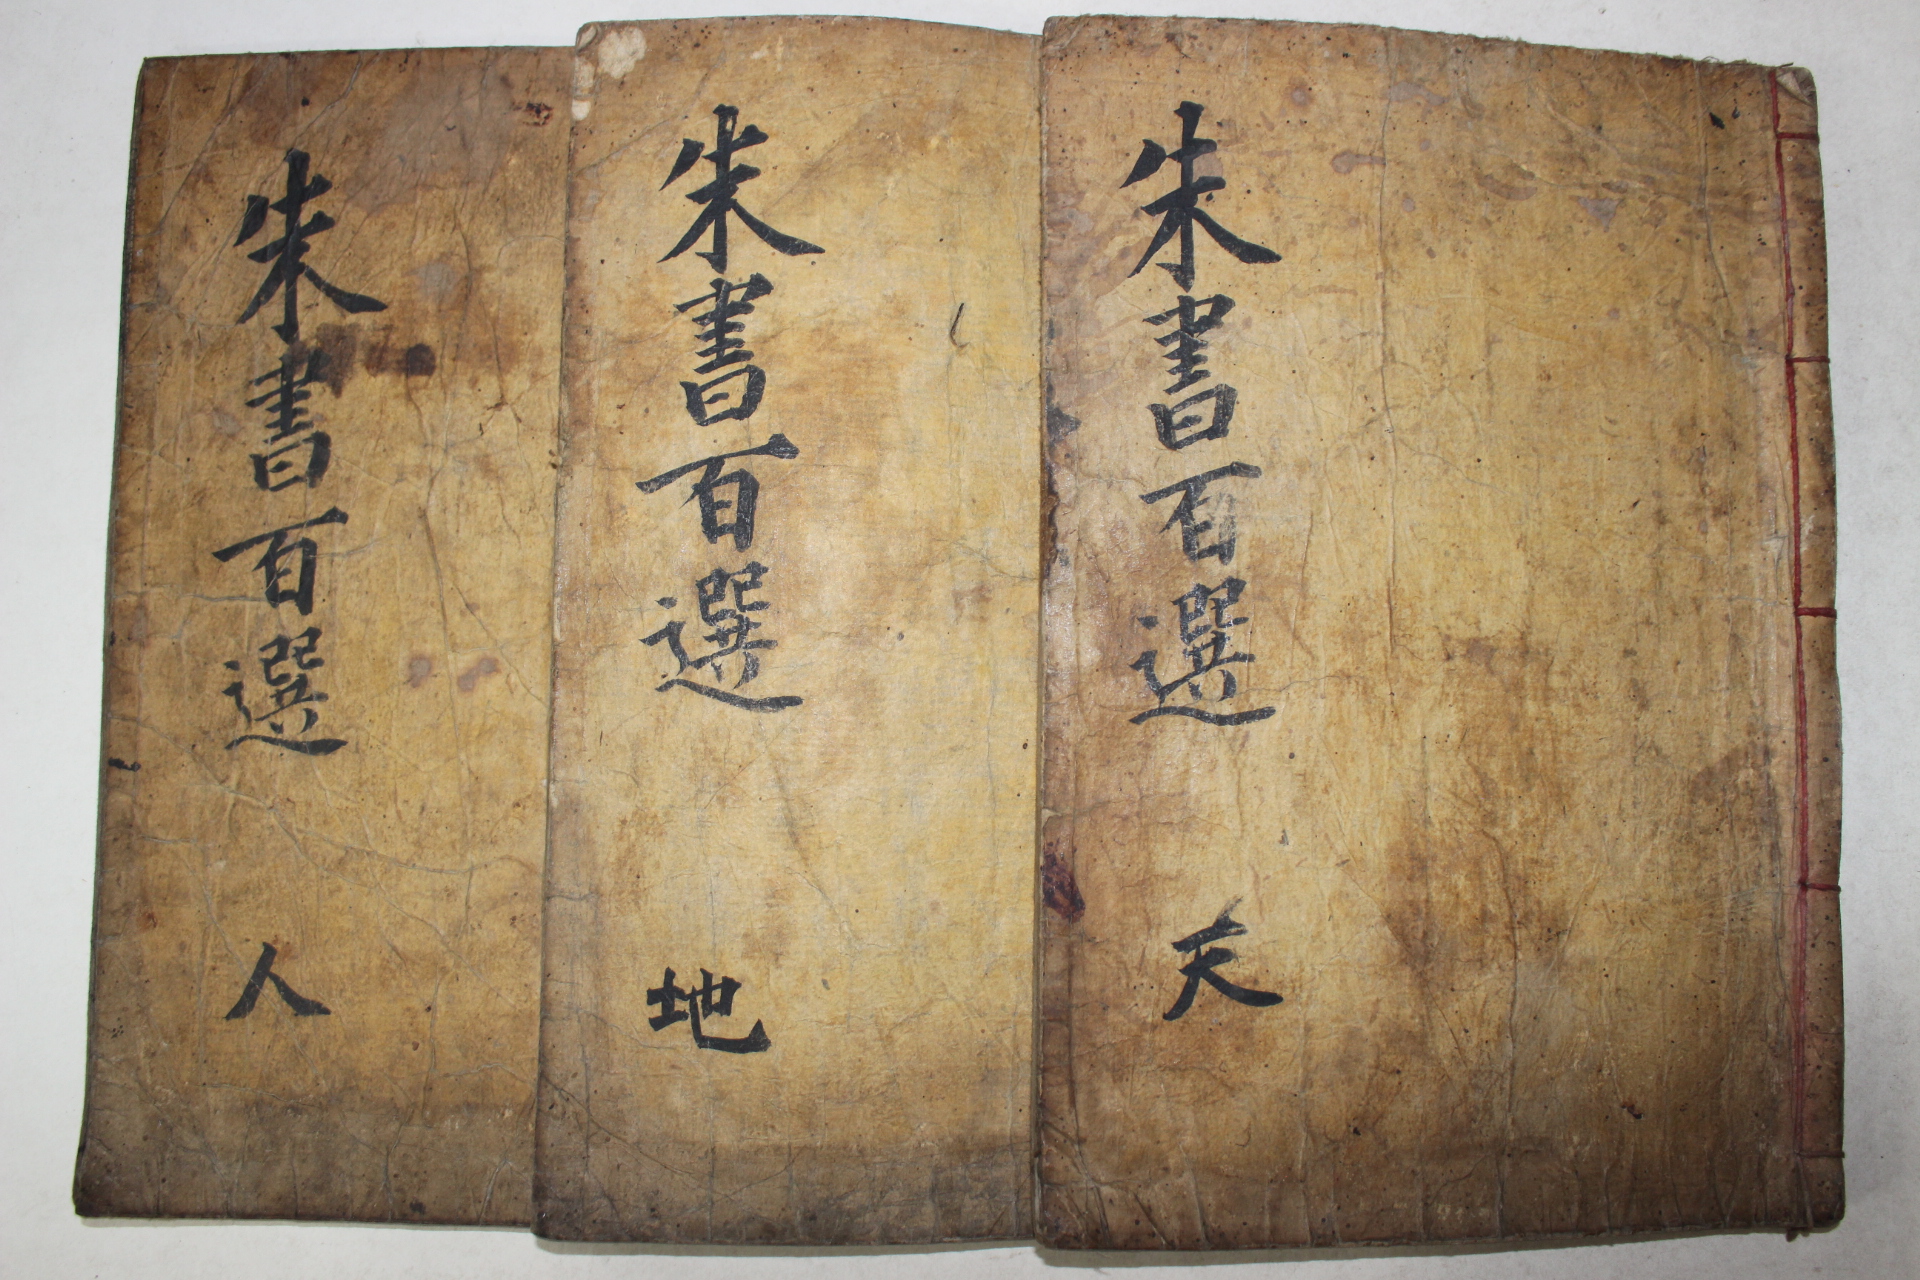 朱書百選
天
朱書百選
地
朱書百選
人